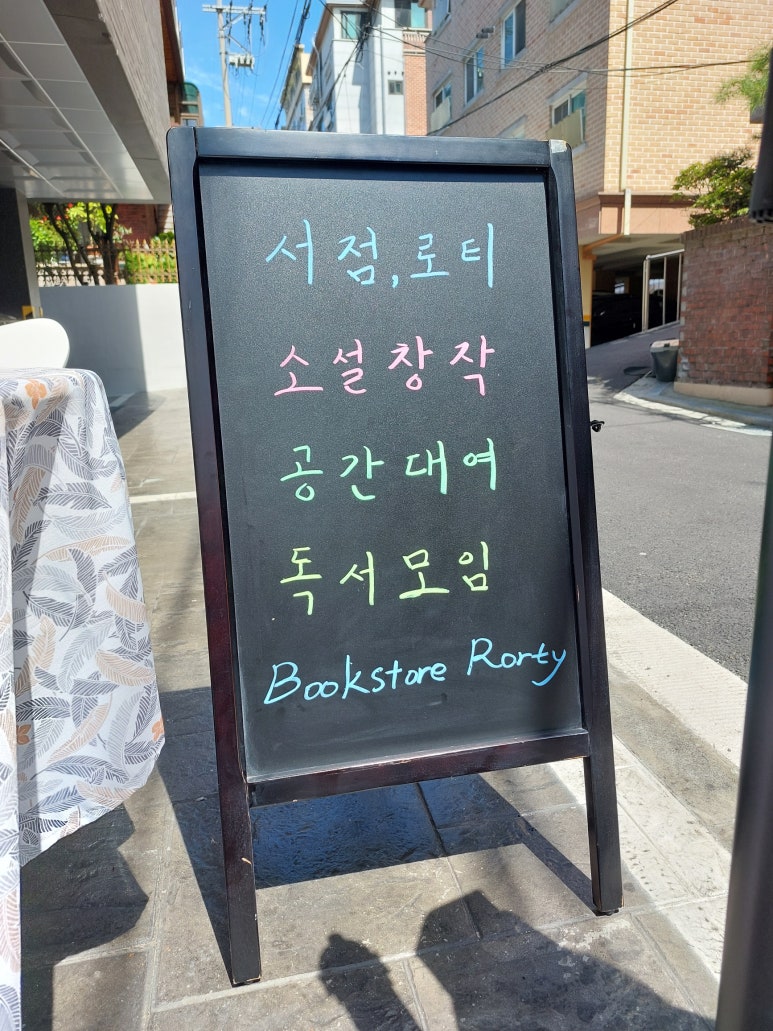 서점, 로티
소설창작
공간대여
독서모임
Bookstore Rorty